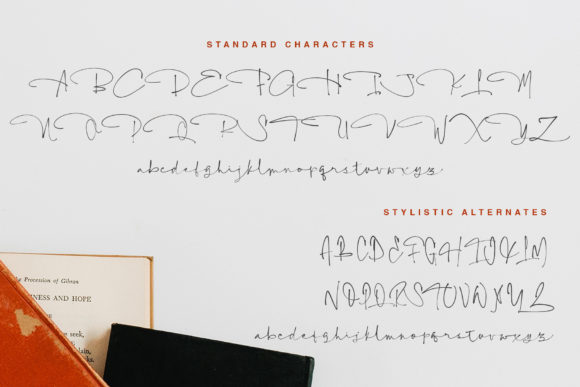 STANDARD CHARACTERS
A B C D E F G H I J K L M
N O P Q R S T U V W X Y Z
abcdefghijklmnopqrstuvwxyz
STYLISTIC ALTERNATES
A B C D E F G H I J K L M
N O P Q R S T U V W X Y Z
abcdefghijklmnopqrstuvwxyz
the Procession of Gibson
NESS AND HOPE
seek,
plain,